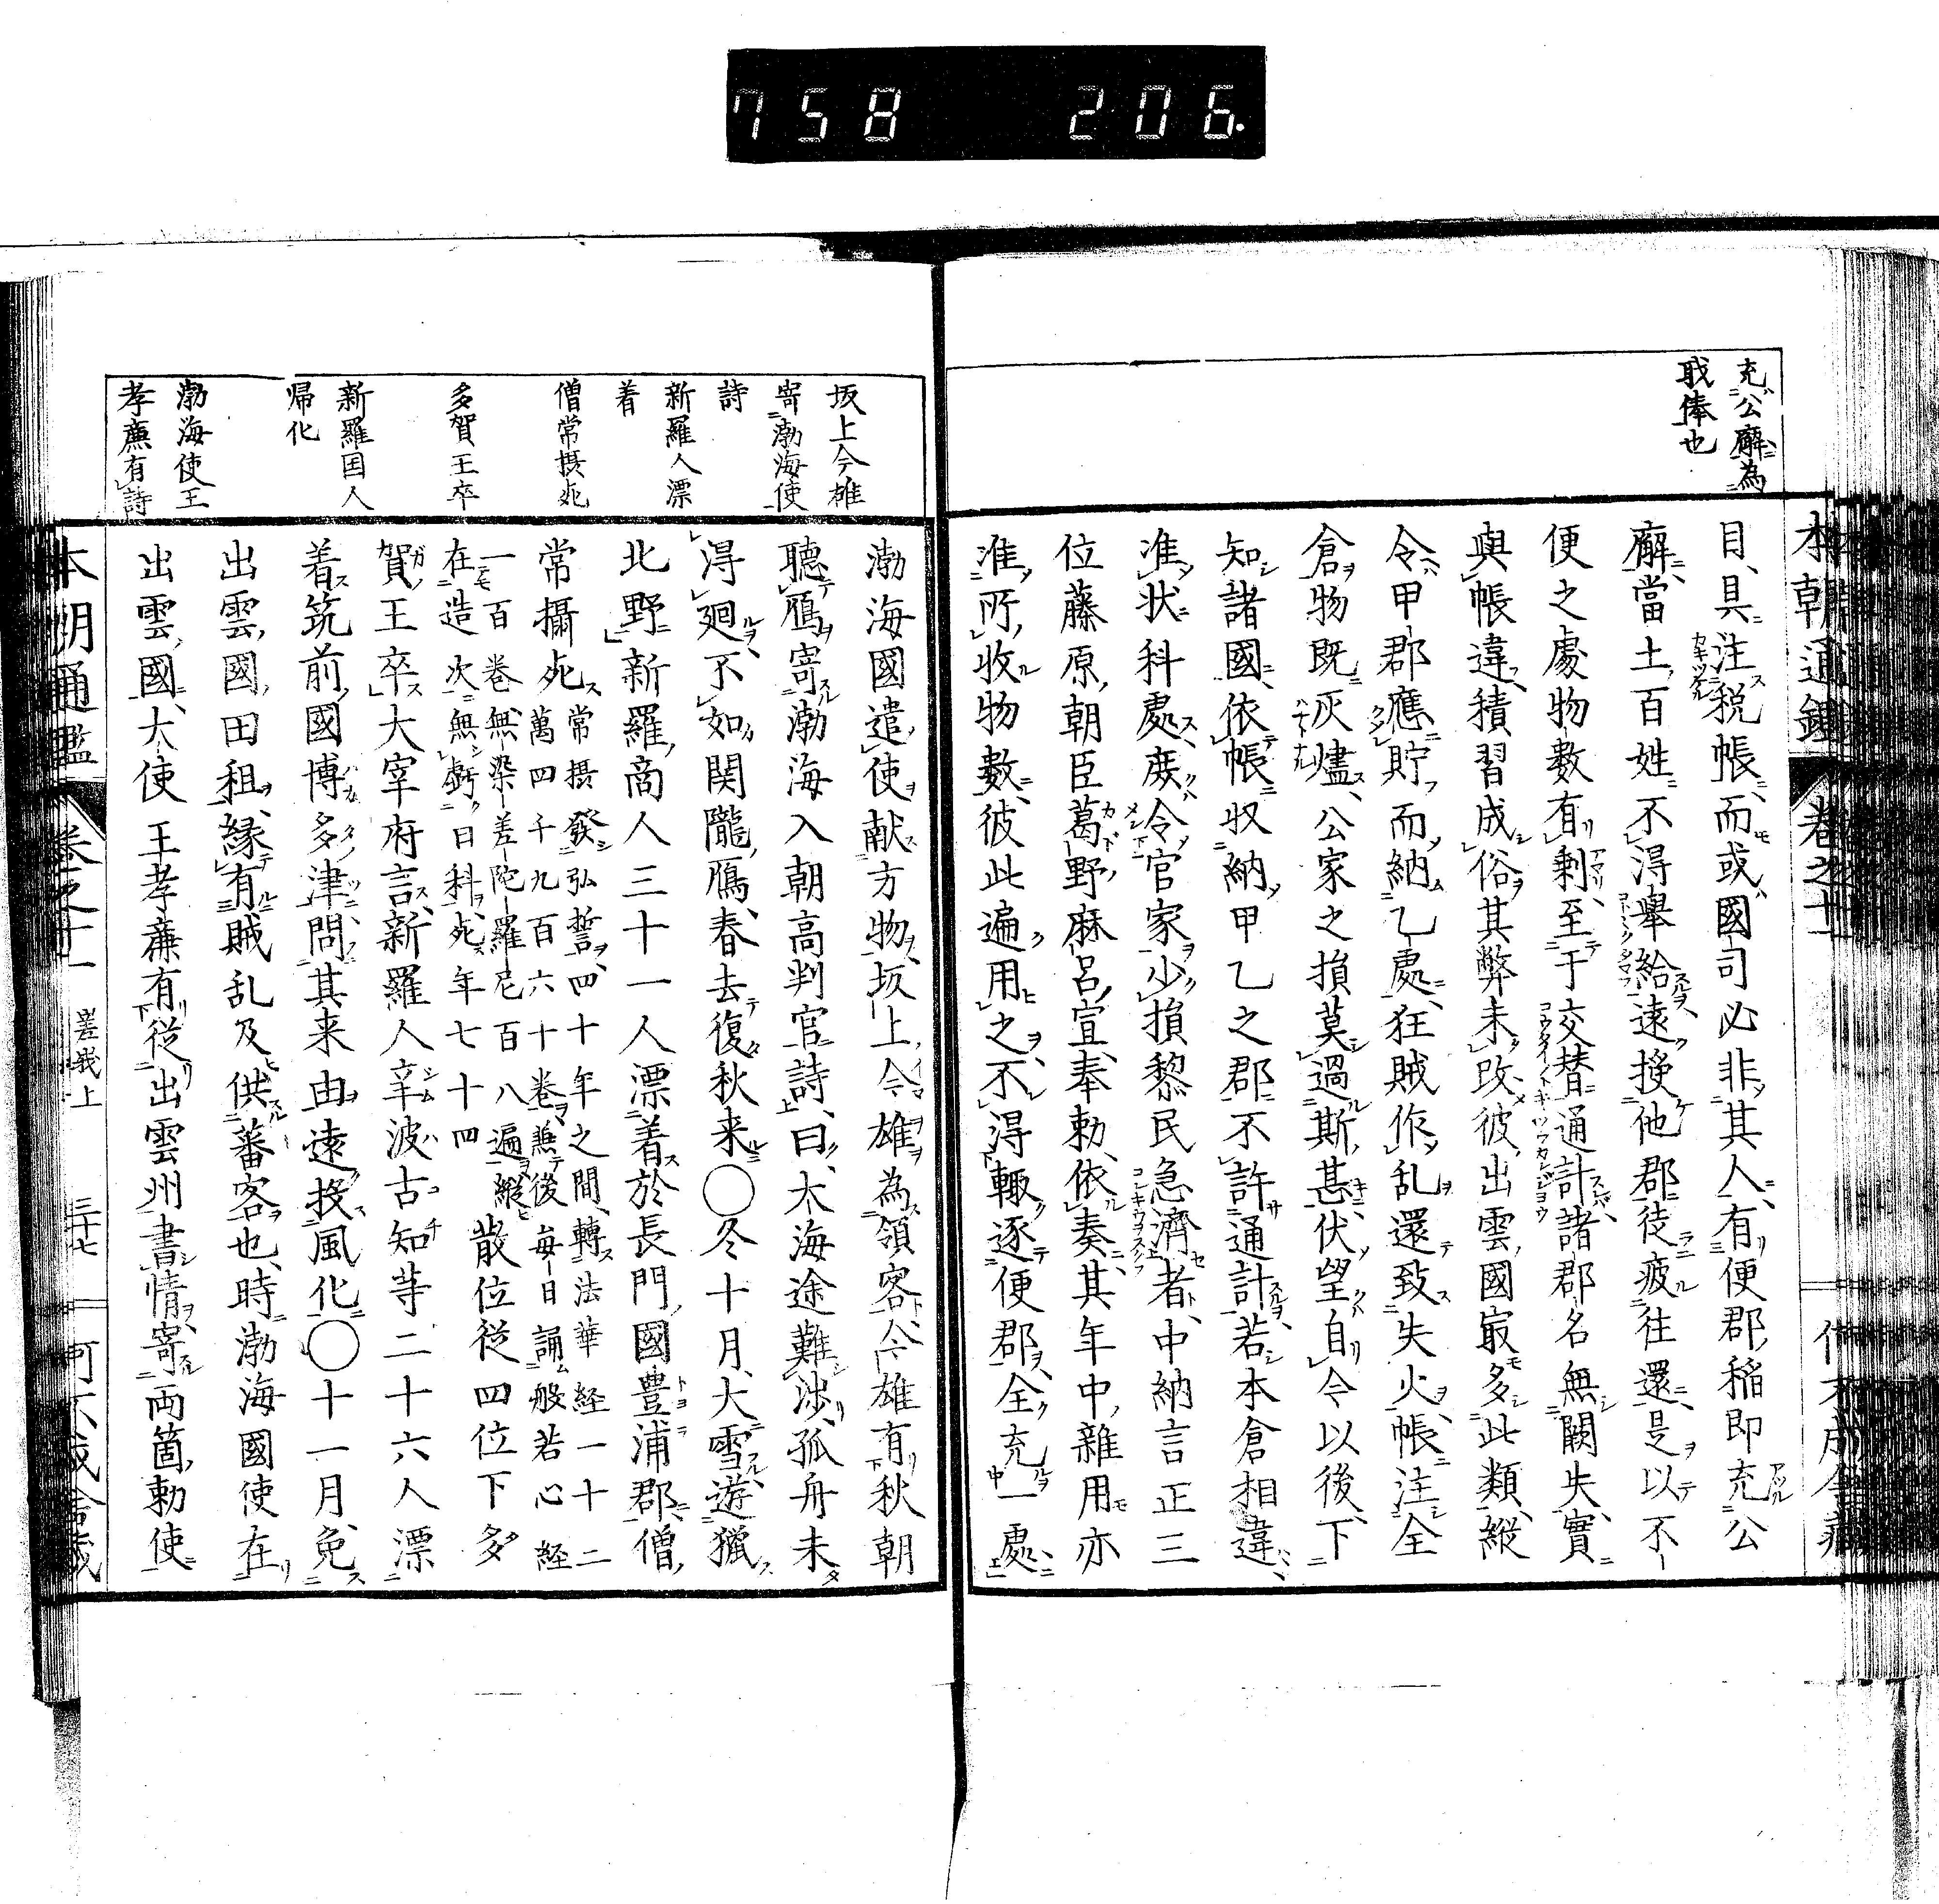 758 206.
充公廨為
戝俸也
目具注税帳而或國司必非其人有便郡稲即充公
廨當土百姓不得舉給遠挽他郡徒疲往還是以不
便之處物數有剰至于交替通計諸郡名無闕失實
與帳違積習成俗其弊未改彼出雲國最多此類縱
令甲郡應貯而納乙處狂賊作乱還致失火帳注全
倉物既灰燼公家之損莫過斯甚伏望自今以後下
知諸國依帳収納甲乙之郡不許通計若本倉相違
准状科處庶令官家少損黎民急濟者中納言正三
位藤原朝臣葛野麻呂宣奉勅依奏其年中雜用亦
准所收物數彼此遍用之不得輙逐便郡全充一處
坂上今雄
寄渤海使
詩
新羅人漂
着
僧常摂死
多賀王卒
新羅国人
帰化
渤海使王
孝廉有詩
渤海國遣使献方物坂上今雄為領客今雄有秋朝
聽鴈寄渤海入朝高判官詩曰大海途難渉孤舟未
得廻不如関隴鴈春去復秋来〇冬十月大雪遊獵
北野新羅商人三十一人漂着於長門國豊浦郡僧
常攝死常摂發弘誓四十年之間轉法華経一十二
萬四千九百六十巻兼後毎日誦般若心経
一百巻無染差陀羅尼百八遍縱
在造次無虧日科死年七十四
散位従四位下多
賀王卒大宰府言新羅人辛波古知等二十六人漂
着筑前國博多津問其来由遠投風化〇十一月免
出雲國田租縁有賊乱及供蕃客也時渤海國使在
出雲國大使王孝廉有従出雲州書情寄兩箇勅使
本朝通鑑 巻之十一 嵯峨上 三十七